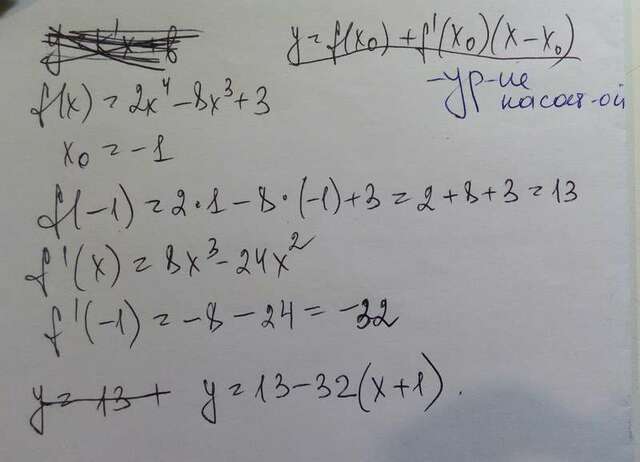 y = f(x₀) + f'(x₀)(x - x₀)
- ур-ие
касат-ой
f(x) = 2x⁴ - 8x³ + 3
x₀ = -1
f(-1) = 2·1 - 8·(-1) + 3 = 2 + 8 + 3 = 13
f'(x) = 8x³ - 24x²
f'(-1) = -8 - 24 = -32
y = 13 + y = 13 - 32(x+1).